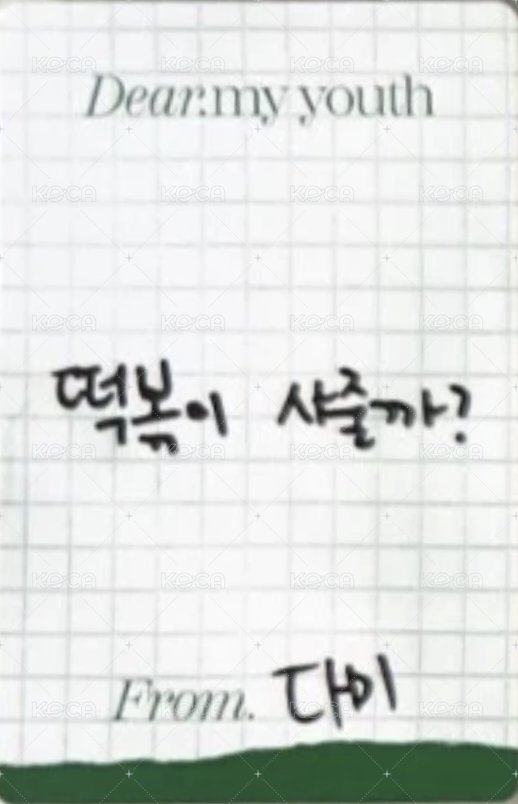 Dear.my youth
떡볶이 사줄까?
From. 다이